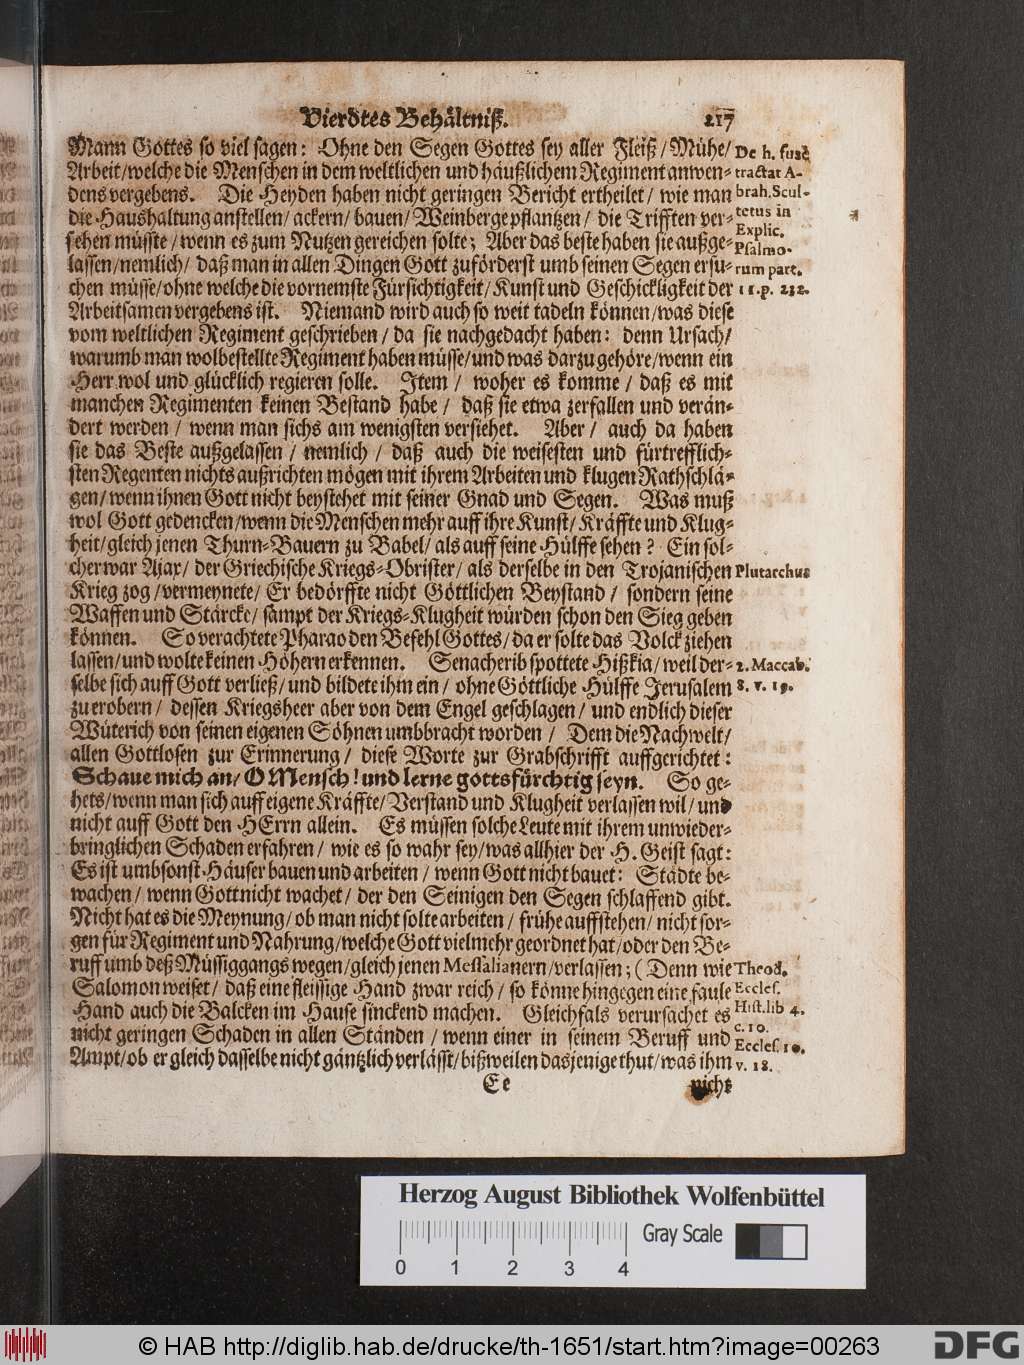 Vierdtes Behältniß. 217
Mann Gottes so viel sagen: Ohne den Segen Gottes sey aller Fleiß/ Mühe/
Arbeit/ welche die Menschen in dem weltlichen und häußlichem Regiment anwen-
dens vergebens. Die Heyden haben nicht geringen Bericht ertheilet/ wie man
die Haushaltung anstellen/ ackern/ bauen/ Weinberge pflantzen/ die Trifften ver-
sehen müsste/ wenn es zum Nutzen gereichen solte; Aber das beste haben sie außge-
lassen/ nemlich/ daß man in allen Dingen Gott zuförderst umb seinen Segen ersu-
chen müsse/ ohne welche die vornemste Fürsichtigkeit/ Kunst und Geschickligkeit der
Arbeitsamen vergebens ist. Niemand wird auch so weit tadeln können/ was diese
vom weltlichen Regiment geschrieben/ da sie nachgedacht haben: denn Ursach/
warumb man wolbestellte Regiment haben müsse/ und was darzu gehöre/ wenn ein
Herr wol und glücklich regieren solle. Item/ woher es komme/ daß es mit
manchen Regimenten keinen Bestand habe/ daß sie etwa zerfallen und verän-
dert werden/ wenn man sichs am wenigsten versiehet. Aber/ auch da haben
sie das Beste außgelassen/ nemlich/ daß auch die weisesten und fürtrefflich-
sten Regenten nichts außrichten mögen mit ihrem Arbeiten und klugen Rathschlä-
gen/ wenn ihnen Gott nicht beystehet mit seiner Gnad und Segen. Was muß
wol Gott gedencken/ wenn die Menschen mehr auff ihre Kunst/ Kräffte und Klug-
heit/ gleich jenen Thurn-Bauern zu Babel/ als auff seine Hülffe sehen? Ein sol-
cher war Ajax/ der Griechische Kriegs-Obrister/ als derselbe in den Trojanischen
Krieg zog/ vermeynete/ Er bedörffte nicht Göttlichen Beystand/ sondern seine
Waffen und Stärcke/ sampt der Kriegs-Klugheit würden schon den Sieg geben
können. So verachtete Pharao den Befehl Gottes/ da er solte das Volck ziehen
lassen/ und wolte keinen Höhern erkennen. Senacherib spottete Hißkia/ weil der-
selbe sich auff Gott verließ/ und bildete ihm ein/ ohne Göttliche Hülffe Jerusalem
zu erobern/ dessen Kriegsheer aber von dem Engel geschlagen/ und endlich dieser
Wüterich von seinen eigenen Söhnen umbbracht worden/ Dem die Nachwelt/
allen Gottlosen zur Erinnerung/ diese Worte zur Grabschrifft auffgerichtet:
Schaue mich an/ O Mensch! und lerne gottsfürchtig seyn. So ge-
hets/ wenn man sich auff eigene Kräffte/ Verstand und Klugheit verlassen wil/ und
nicht auff Gott den HErrn allein. Es müssen solche Leute mit ihrem unwieder-
bringlichen Schaden erfahren/ wie es so wahr sey/ was allhier der H. Geist sagt:
Es ist umbsonst Häuser bauen und arbeiten/ wenn Gott nicht bauet: Städte be-
wachen/ wenn Gott nicht wachet/ der den Seinigen den Segen schlaffend gibt.
Nicht hat es die Meynung/ ob man nicht solte arbeiten/ frühe auffstehen/ nicht sor-
gen für Regiment und Nahrung/ welche Gott vielmehr geordnet hat/ oder den Be-
ruff umb deß Müssiggangs wegen/ gleich jenen Messalianern/ verlassen; (Denn wie
Salomon weiset/ daß eine fleissige Hand zwar reich/ so könne hingegen eine faule
Hand auch die Balcken im Hause sinckend machen. Gleichfals verursachet es
nicht geringen Schaden in allen Ständen/ wenn einer in seinem Beruff und
Ampt/ ob er gleich dasselbe nicht gäntzlich verlässt/ bißweilen dasjenige thut/ was ihm
Ee nicht
De h. fusè
tractat A-
brah. Scul-
tetus in
Explic.
Psalmo-
rum part.
11. p. 232.
Plutarchus
2. Maccab.
8. v. 19.
Theod.
Eccles.
Hist. lib 4.
c. 10.
Eccles. 10.
v. 18.
Herzog August Bibliothek Wolfenbüttel
Gray Scale
0 1 2 3 4
© HAB http://diglib.hab.de/drucke/th-1651/start.htm?image=00263
DFG